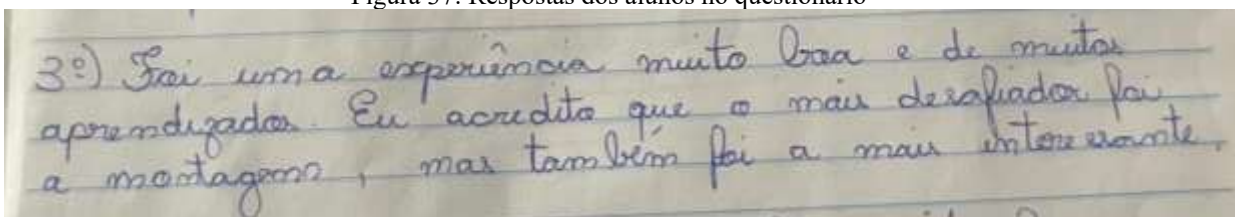 Figura 37: Respostas dos alunos no questionário
3º) Foi uma experiência muito boa e de muitos
aprendizados. Eu acredito que o mais desafiador foi
a montagem, mas também foi a mais interessante.